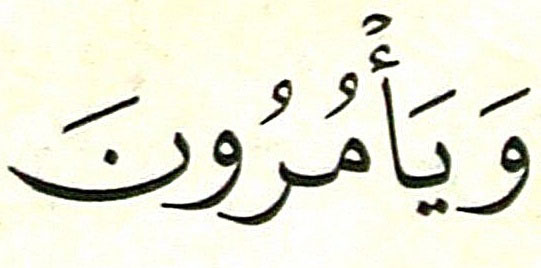 وَيَأْمُرُونَ